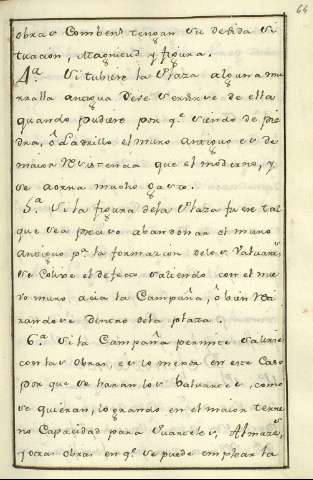 64
obras Combens tengan su devida si
tuacion, Magnitud y figura.
4.ª Si tubiere la Plaza alguna mu
ralla antigua deve servirse de ella
quando pudiere por q.e siendo de pie
dra, ô Ladrillo el muro Antiguo es de
maior Resistencia que el moderno, y
se aorra mucho gasto.
5.ª Si la figura dela Plaza fuere tal
que sea preciso abandonar el muro
Antiguo p.ª la formacion delos Valuartes,
se Coloca el defecto saliendo con el nue
vo muro acia la Campaña, ô bien Re
tirandose dentro dela plaza.
6.ª Si la Campaña permite salirse
con las obras, es lo menor en este Caso
por que se haran los Valuartes, como
se quieran, logrando en el maior terre
no Capacidad para Quarteles, Almazs,
y otras obras en q.e se puede emplear la